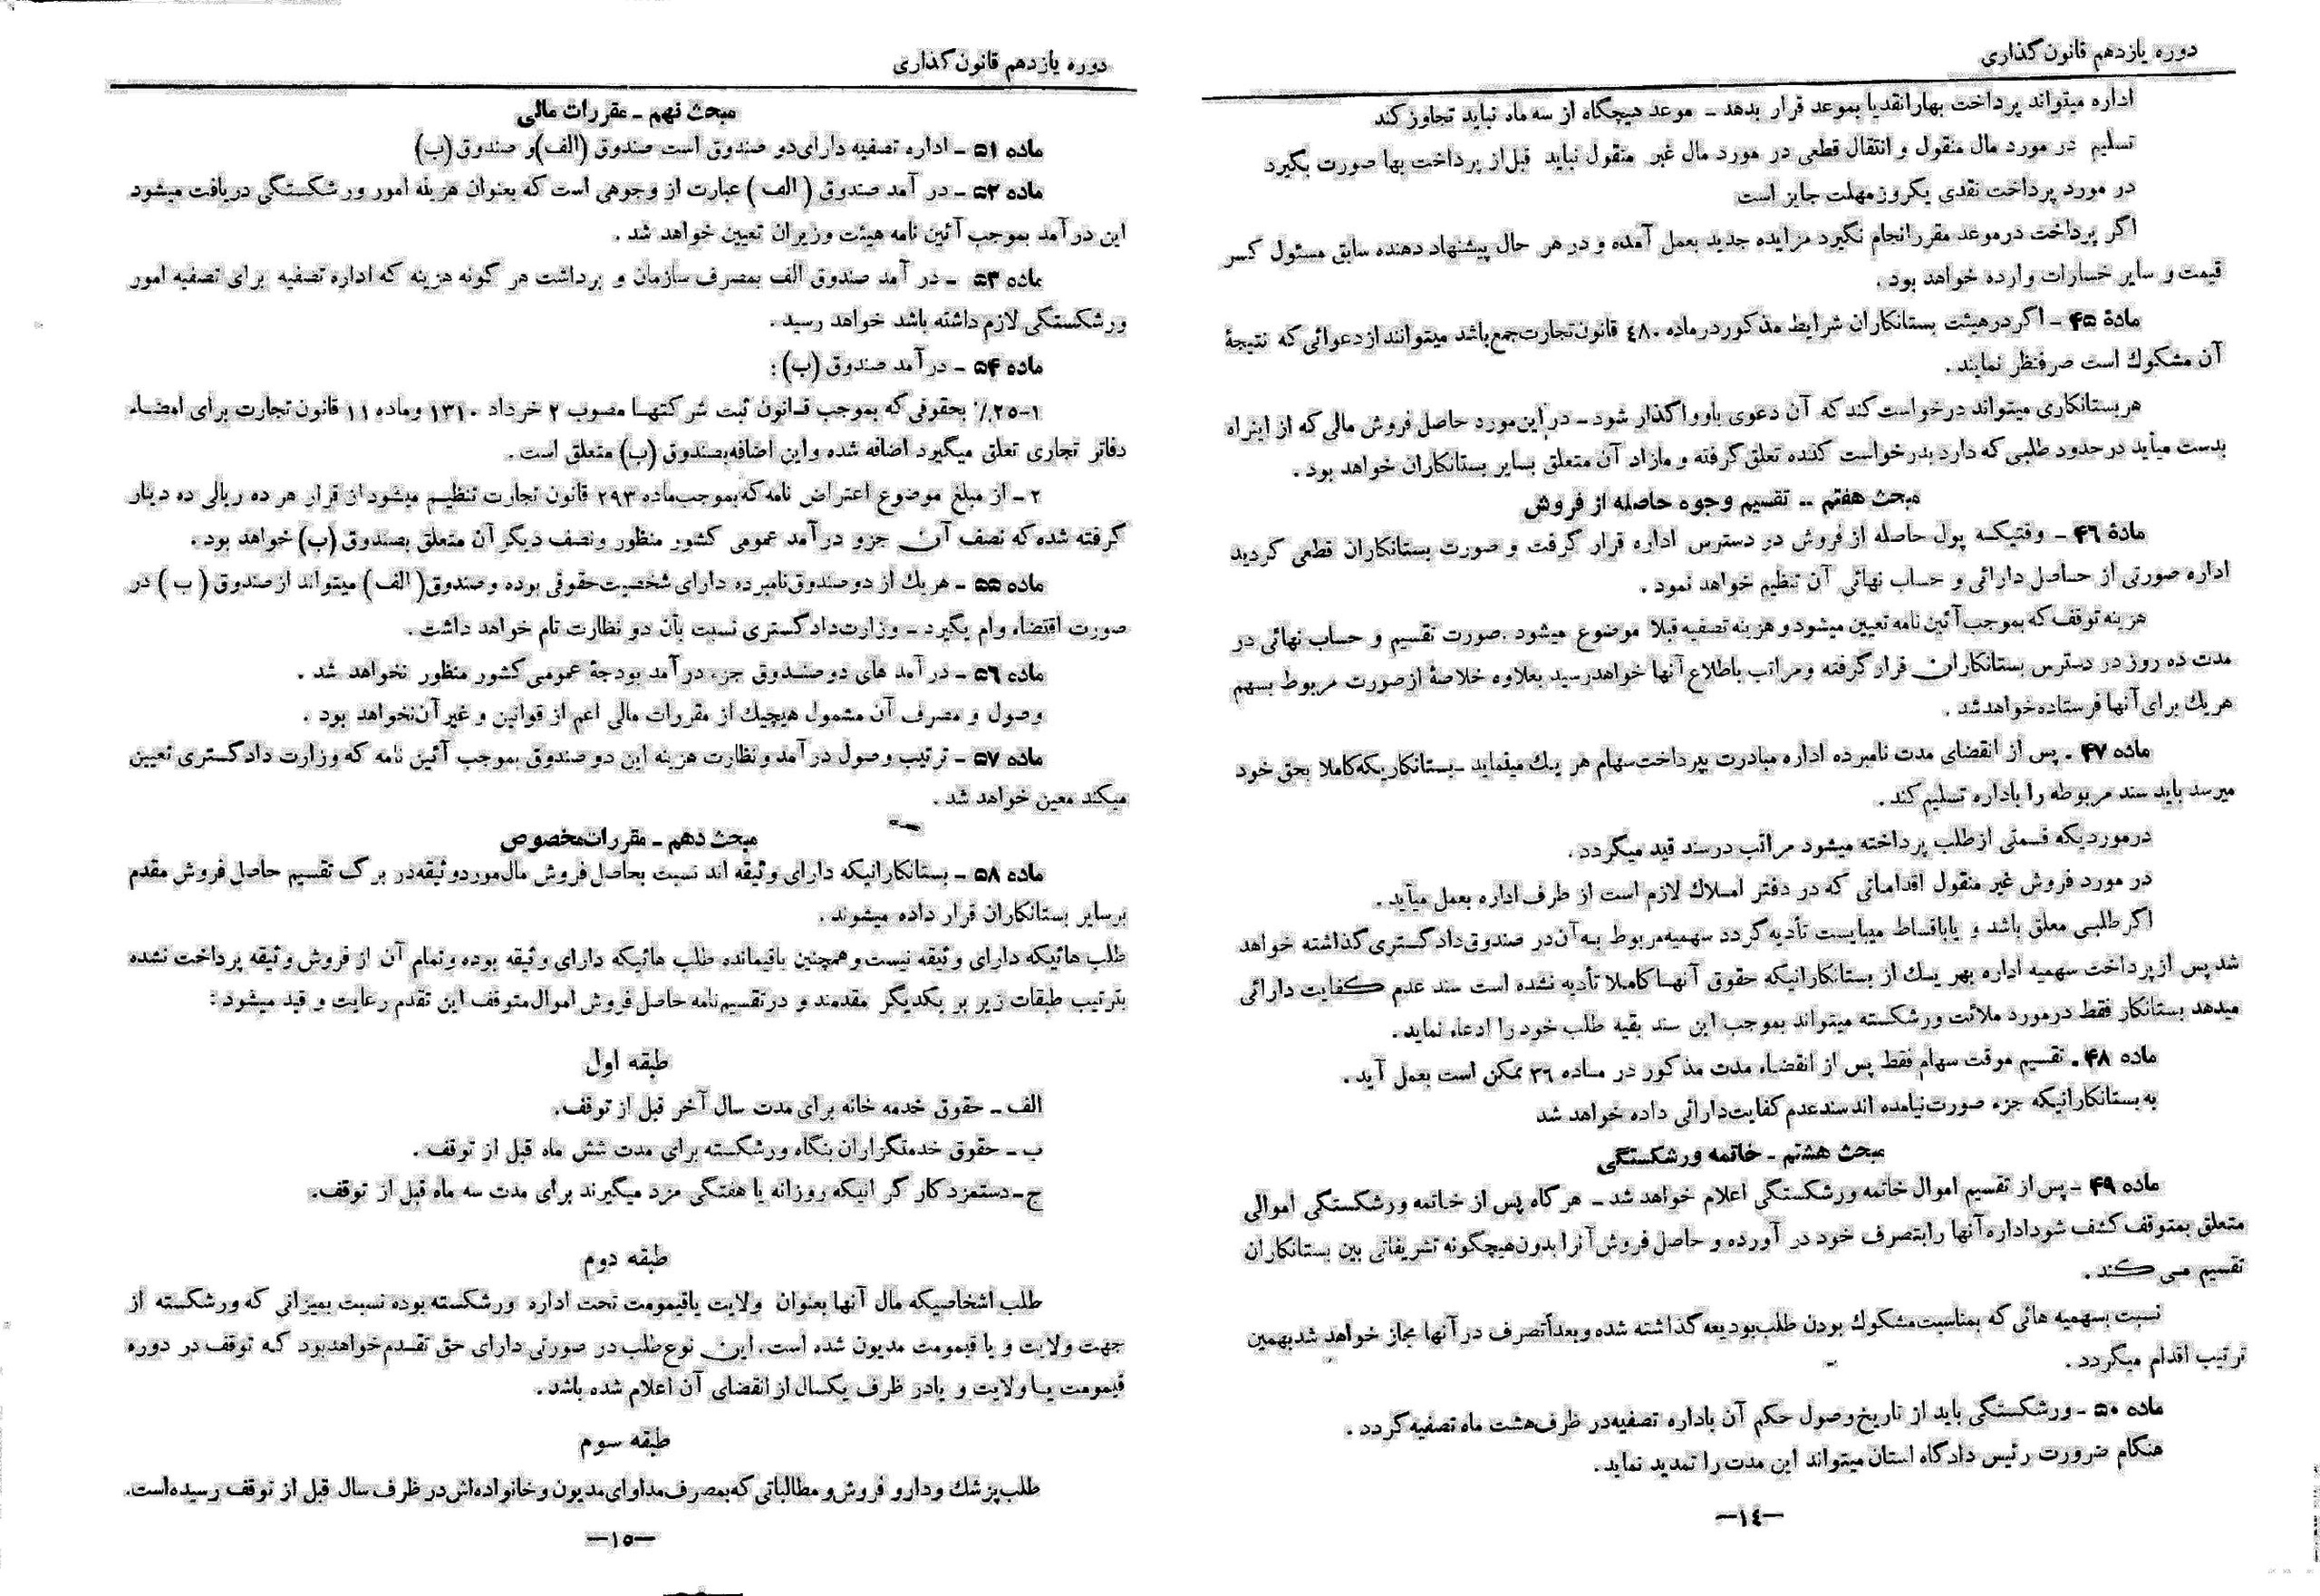 دوره یازدهم قانون گذاری
اداره میتواند پرداخت بهارانقدیا بموعد قرار بدهد - موعد هیچگاه از سه ماه نباید تجاوز کند
تسلیم در مورد مال منقول و انتقال قطعی در مورد مال غیر منقول نباید قبل از پرداخت بها صورت بگیرد
در مورد پرداخت نقدی یکروز مهلت جایز است
اگر پرداخت درموعد مقررانجام نگیرد مزایده جدید بعمل آمده و در هر حال پیشنهاد دهنده سابق مسئول کسر
قیمت و سایر خسارات وارده خواهد بود .
مادهٔ ۴۵ - اگر درهیئت بستانکاران شرایط مذکور درماده ۴۸۰ قانون تجارت جمع باشد میتوانند از دعوائی که نتیجهٔ
آن مشکوك است صرفنظر نمایند .
هر بستانکاری میتواند درخواست کند که آن دعوی باو واگذار شود - در این مورد حاصل فروش مالی که از اینراه
بدست میآید در حدود طلبی که دارد بدرخواست کننده تعلق گرفته و مازاد آن متعلق بسایر بستانکاران خواهد بود .
مبحث هفتم - تقسیم وجوه حاصله از فروش
مادهٔ ۴۶ - وقتیکه پول حاصله از فروش در دسترس اداره قرار گرفت و صورت بستانکاران قطعی گردید
اداره صورتی از حاصل دارائی و حساب نهائی آن تنظیم خواهد نمود .
هزینه توقف که بموجب آئین نامه تعیین میشود و هزینه تصفیه قبلا موضوع میشود . صورت تقسیم و حساب نهائی در
مدت ده روز در دسترس بستانکاران قرار گرفته و مراتب باطلاع آنها خواهد رسید بعلاوه خلاصهٔ از صورت مربوط بسهم
هریك برای آنها فرستاده خواهد شد .
ماده ۴۷ . پس از انقضای مدت نامبرده اداره مبادرت بپرداخت سهام هر یك مینماید - بستانکاریکه کاملا بحق خود
میرسد باید سند مربوطه را باداره تسلیم کند .
درموردیکه قسمتی از طلب پرداخته میشود مراتب درسند قید میگردد .
در مورد فروش غیر منقول اقداماتی که در دفتر املاك لازم است از طرف اداره بعمل میآید .
اگر طلبی معلق باشد و یا باقساط میبایست تأدیه گردد سهمیه مربوط به آن در صندوق دادگستری گذاشته خواهد
شد پس از پرداخت سهمیه اداره بهر یك از بستانکارانیکه حقوق آنها کاملا تأدیه نشده است سند عدم کفایت دارائی
میدهد بستانکار فقط درمورد ملائت ورشکسته میتواند بموجب این سند بقیه طلب خود را ادعاء نماید .
ماده ۴۸ . تقسیم موقت سهام فقط پس از انقضاء مدت مذکور در ماده ۳۶ ممکن است بعمل آید .
به بستانکارانیکه جزء صورت نیامده اند سند عدم کفایت دارائی داده خواهد شد
مبحث هشتم - خاتمه ورشکستگی
ماده ۴۹ - پس از تقسیم اموال خاتمه ورشکستگی اعلام خواهد شد - هرگاه پس از خاتمه ورشکستگی اموالی
متعلق بمتوقف کشف شود اداره آنها را بتصرف خود در آورده و حاصل فروش آنرا بدون هیچگونه تشریفاتی بین بستانکاران
تقسیم می کند .
نسبت بسهمیه هائی که بمناسبت مشکوك بودن طلب بودیعه گذاشته شده و بعداً تصرف در آنها مجاز خواهد شد بهمین
ترتیب اقدام میگردد .
ماده ۵۰ - ورشکستگی باید از تاریخ وصول حکم آن باداره تصفیه در ظرف هشت ماه تصفیه گردد .
هنگام ضرورت رئیس دادگاه استان میتواند این مدت را تمدید نماید .
—۱٤—
دوره یازدهم قانون گذاری
مبحث نهم - مقررات مالی
ماده ۵۱ - اداره تصفیه دارای دو صندوق است صندوق (الف) و صندوق (ب)
ماده ۵۲ - در آمد صندوق ( الف ) عبارت از وجوهی است که بعنوان هزینه امور ورشکستگی دریافت میشود
این درآمد بموجب آئین نامه هیئت وزیران تعیین خواهد شد .
ماده ۵۳ - در آمد صندوق الف بمصرف سازمان و برداشت هر گونه هزینه که اداره تصفیه برای تصفیه امور
ورشکستگی لازم داشته باشد خواهد رسید .
ماده ۵۴ - درآمد صندوق (ب) :
۱-۲۵٪ بحقوقی که بموجب قانون ثبت شرکتها مصوب ۲ خرداد ۱۳۱۰ و ماده ۱۱ قانون تجارت برای امضاء
دفاتر تجاری تعلق میگیرد اضافه شده و این اضافه بصندوق (ب) متعلق است .
۲ - از مبلغ موضوع اعتراض نامه که بموجب ماده ۲۹۳ قانون تجارت تنظیم میشود از قرار هر ده ریالی ده دینار
گرفته شده که نصف آن جزو درآمد عمومی کشور منظور و نصف دیگر آن متعلق بصندوق (ب) خواهد بود .
ماده ۵۵ - هریك از دو صندوق نامبرده دارای شخصیت حقوقی بوده و صندوق ( الف ) میتواند از صندوق ( ب ) در
صورت اقتضاء وام بگیرد - وزارت دادگستری نسبت بآن دو نظارت تام خواهد داشت .
ماده ۵۶ - درآمد های دو صندوق جزء درآمد بودجهٔ عمومی کشور منظور نخواهد شد .
وصول و مصرف آن مشمول هیچیك از مقررات مالی اعم از قوانین و غیر آن نخواهد بود .
ماده ۵۷ - ترتیب وصول درآمد و نظارت هزینه این دو صندوق بموجب آئین نامه که وزارت دادگستری تعیین
میکند معین خواهد شد .
مبحث دهم - مقررات مخصوص
ماده ۵۸ - بستانکارانیکه دارای وثیقه اند نسبت بحاصل فروش مال مورد وثیقه در برگ تقسیم حاصل فروش مقدم
برسایر بستانکاران قرار داده میشوند .
طلب هائیکه دارای وثیقه نیست و همچنین باقیمانده طلب هائیکه دارای وثیقه بوده و تمام آن از فروش وثیقه پرداخت نشده
بترتیب طبقات زیر بر یکدیگر مقدمند و در تقسیم نامه حاصل فروش اموال متوقف این تقدم رعایت و قید میشود :
طبقه اول
الف - حقوق خدمه خانه برای مدت سال آخر قبل از توقف .
ب - حقوق خدمتگزاران بنگاه ورشکسته برای مدت شش ماه قبل از توقف .
ج - دستمزد کارگرانیکه روزانه یا هفتگی مزد میگیرند برای مدت سه ماه قبل از توقف .
طبقه دوم
طلب اشخاصیکه مال آنها بعنوان ولایت یا قیمومت تحت اداره ورشکسته بوده نسبت بمیزانی که ورشکسته از
جهت ولایت و یا قیمومت مدیون شده است . این نوع طلب در صورتی دارای حق تقدم خواهد بود که توقف در دوره
قیمومت یا ولایت و یا در ظرف یکسال از انقضای آن اعلام شده باشد .
طبقه سوم
طلب پزشك و دارو فروش و مطالباتی که بمصرف مداوای مدیون و خانواده اش در ظرف سال قبل از توقف رسیده است .
—۱۵—